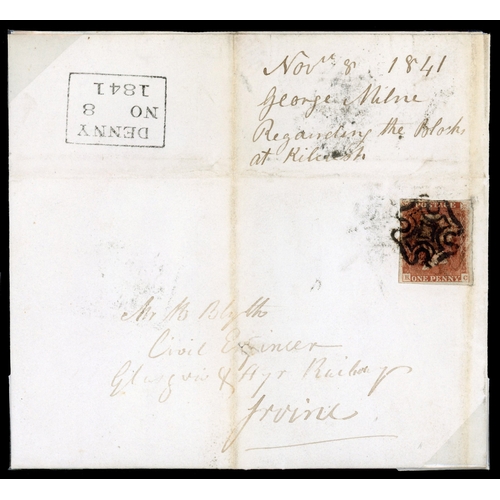 Novr 8 1841
George Milne
Regarding the Blocks
at
DENNY
NO 8
1841
POSTAGE
ONE PENNY
Mr Blyth
Civil Engineer
Glasgow & Ayr Railway
Irvine